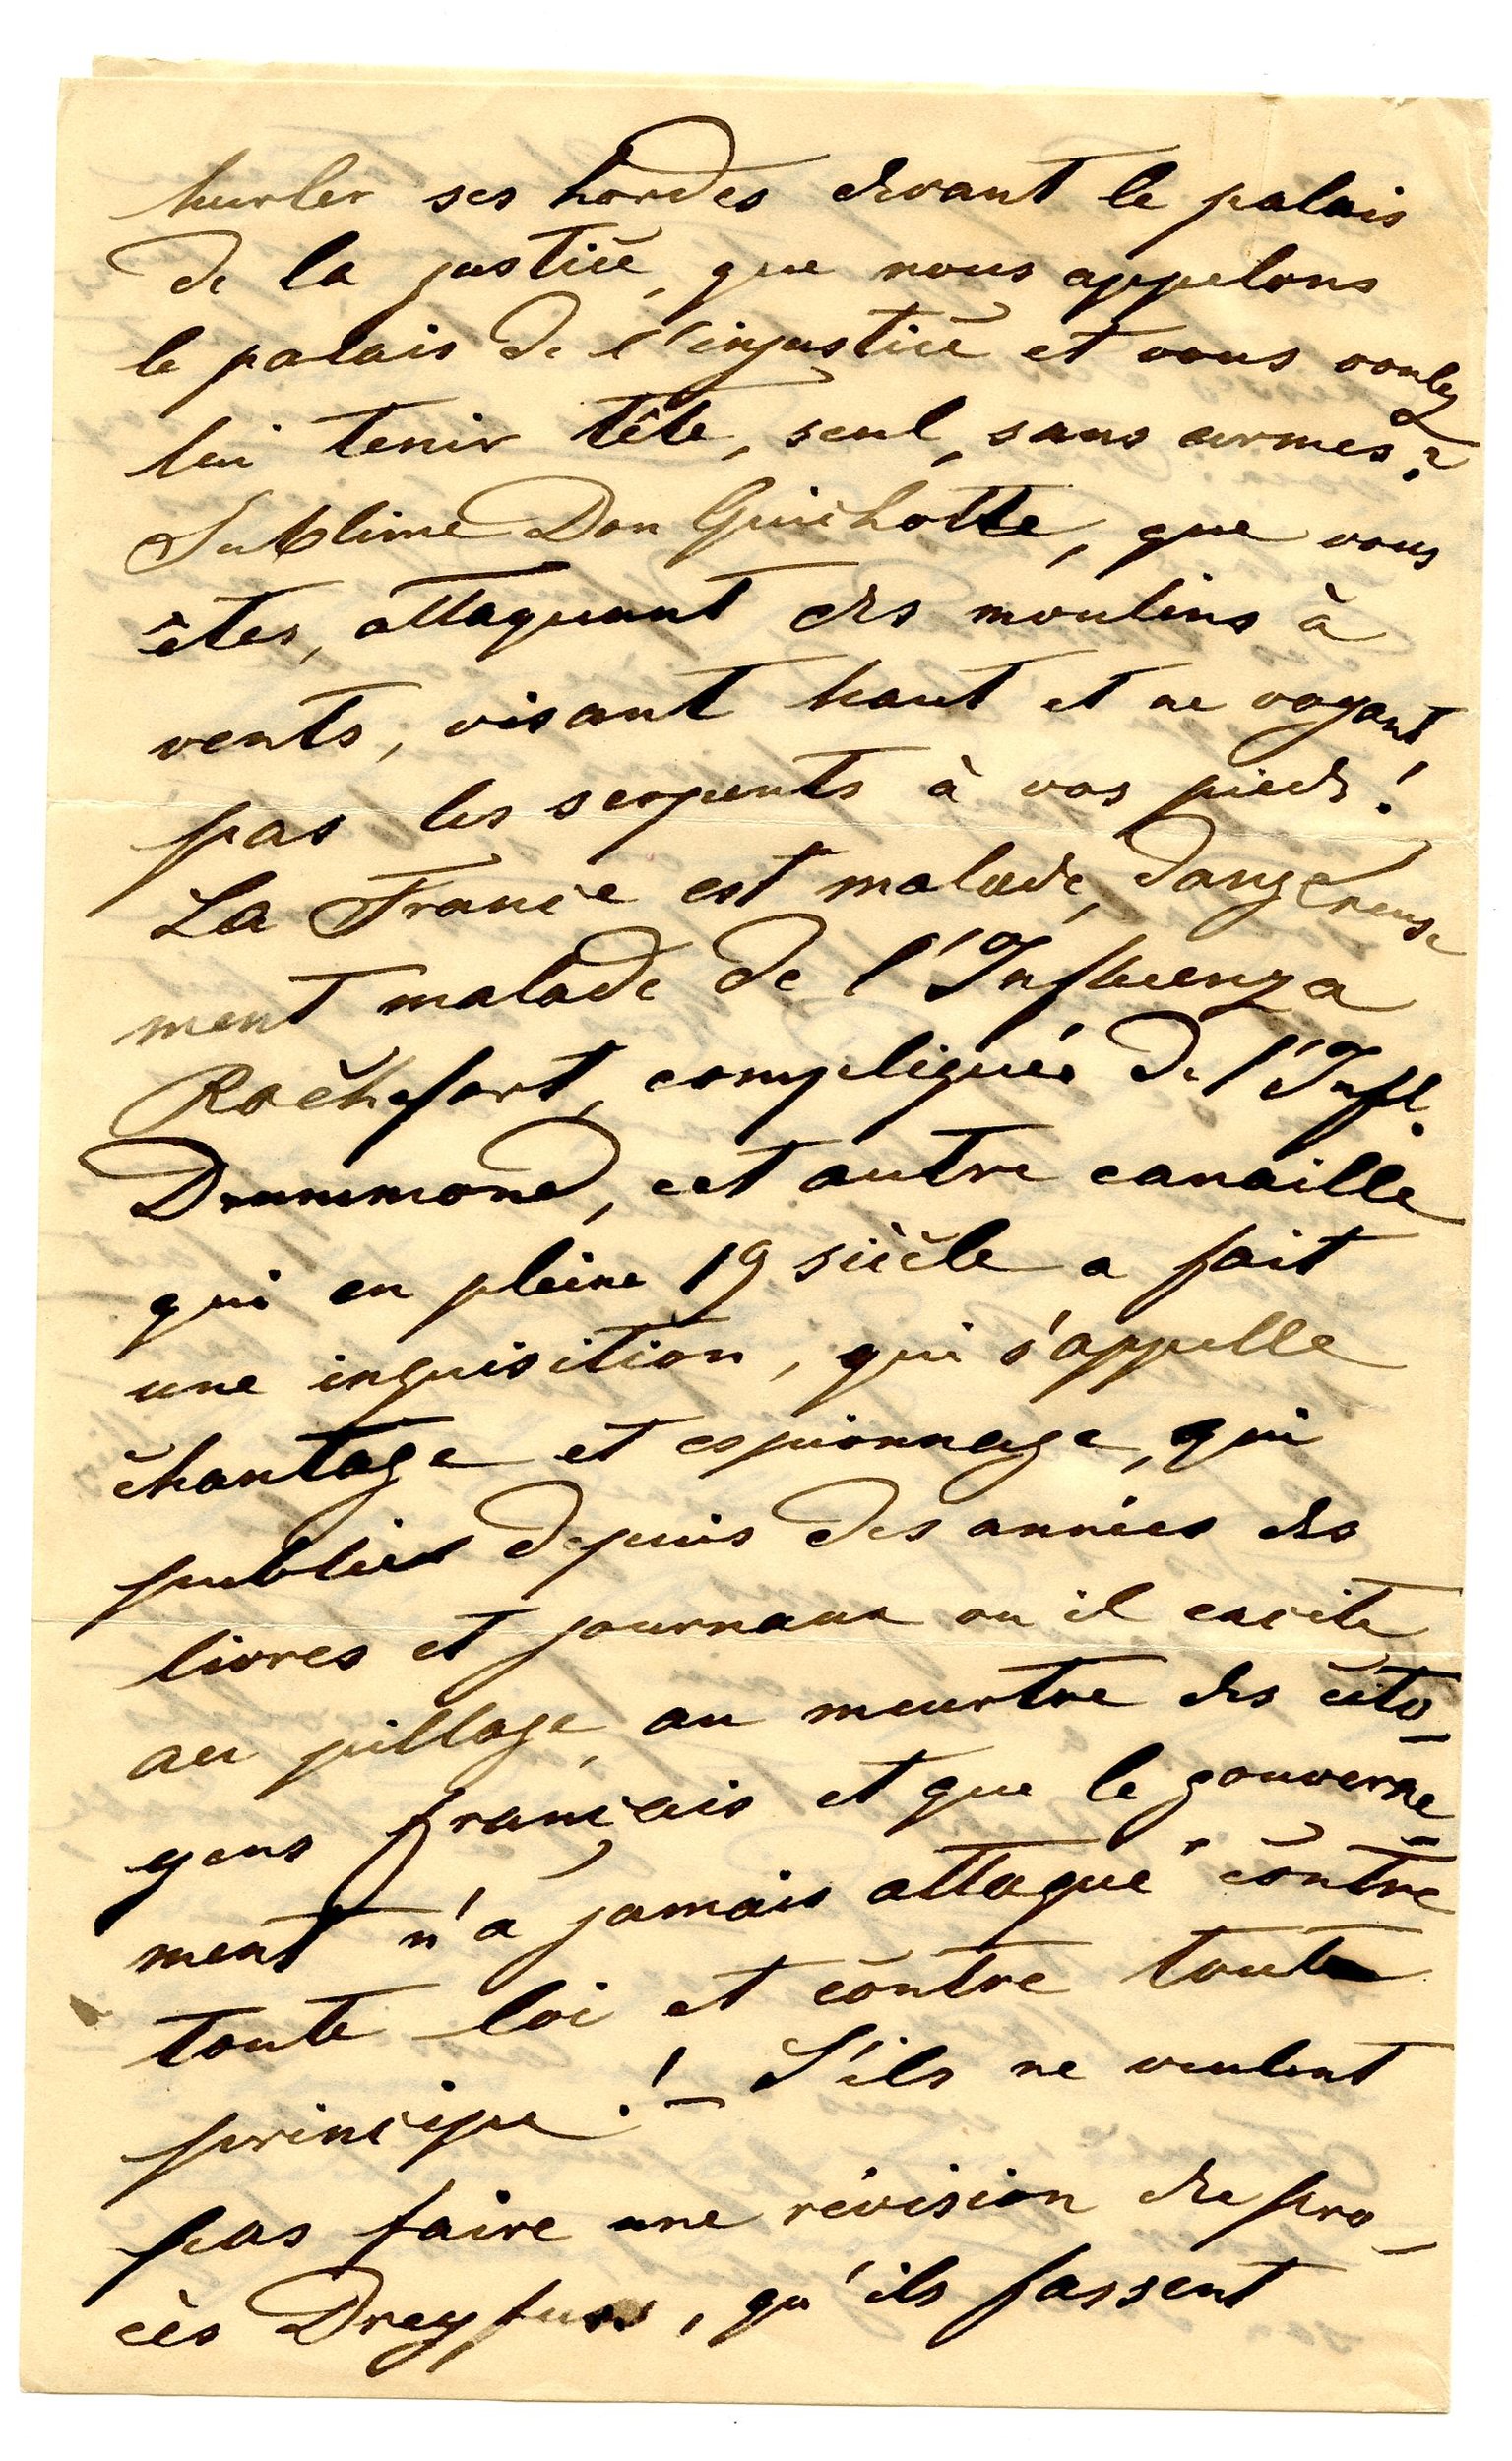 hurler ses hordes devant le palais
de la justice, que nous appelons
le palais de l'injustice et vous voulez
lui tenir tête, seul, sans armes?
Sublime Don Quichotte, que vous
êtes, attaquant des moulins à
vents, visant haut et ne voyant
pas les serpents à vos pieds!
La France est malade, dangereuse
ment malade de l'Influenza
Rochefort, compliquée de l'Infl.
Drummond, cet autre canaille
qui en pleine 19 siècle a fait
une inquisition, qui s'appelle
chantage et espionnage, qui
publies depuis des années des
livres et journaux ou il excite
au pillage, au meurtre des cito-
yens français et que le gouverne-
ment n'a jamais attaqué contre
toute loi et contre toute
principe! – S'ils ne veulent
pas faire une révision du pro-
cès Dreyfuss, qu'ils fassent